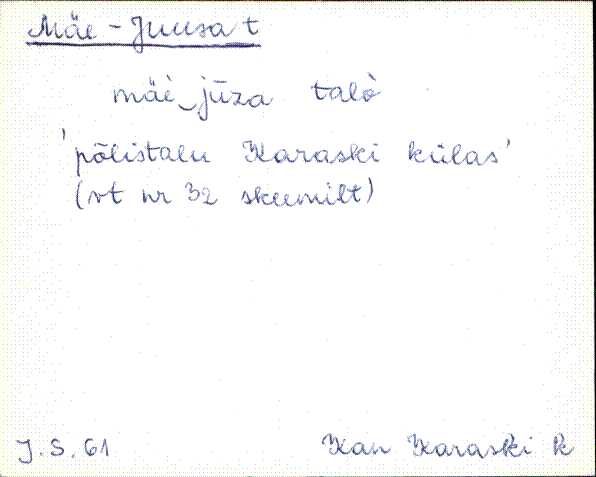 Mäe-Juusa t
mäè‿jūza talò
'põlistalu Karaski külas'
(vt nr 32 skeemilt)
J.S. 61
Kan Karaski k